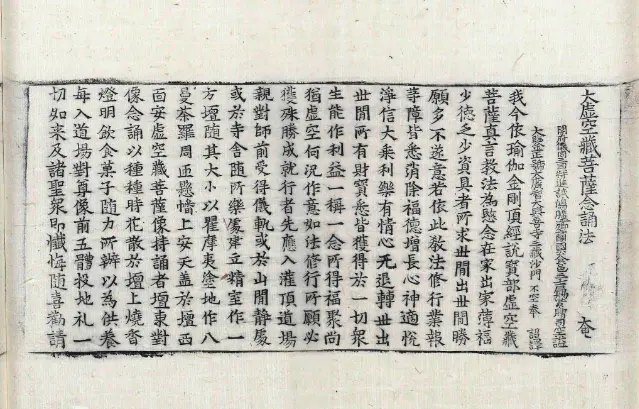 大虛空藏菩薩念誦法
大鑒正號大廣智大興善寺三藏沙門不空奉 詔譯
我今依瑜伽金剛頂經說寶部虛空藏
菩薩真言教法為愍念在家出家薄福
少德乏少資具者所求世間出世間勝
願多不遂意若依此教法修行業報
等障皆悉消除福德增長心神適悅
淨信大乘利樂有情心无退轉世出
世間所有財寶悉皆獲得於一切衆
生能作利益一稱一念所得福聚尚
猶虛空何況作意如法修行所願必
獲殊勝成就行者先應入灌頂道場
親對師前受得儀軌或於山間静處
或於寺舍随所樂處建立精室作一
方壇随其大小以瞿摩夷塗地作八
曼荼羅周迊懸幡上安天盖於壇西
面安虛空藏菩薩像持誦者壇東對
像念誦以種種時花散於壇上燒香
燈明飲食菓子随力所辦以為供養
每入道場對尊像前五體投地礼一
切如來及諸聖衆即懺悔随喜勸請